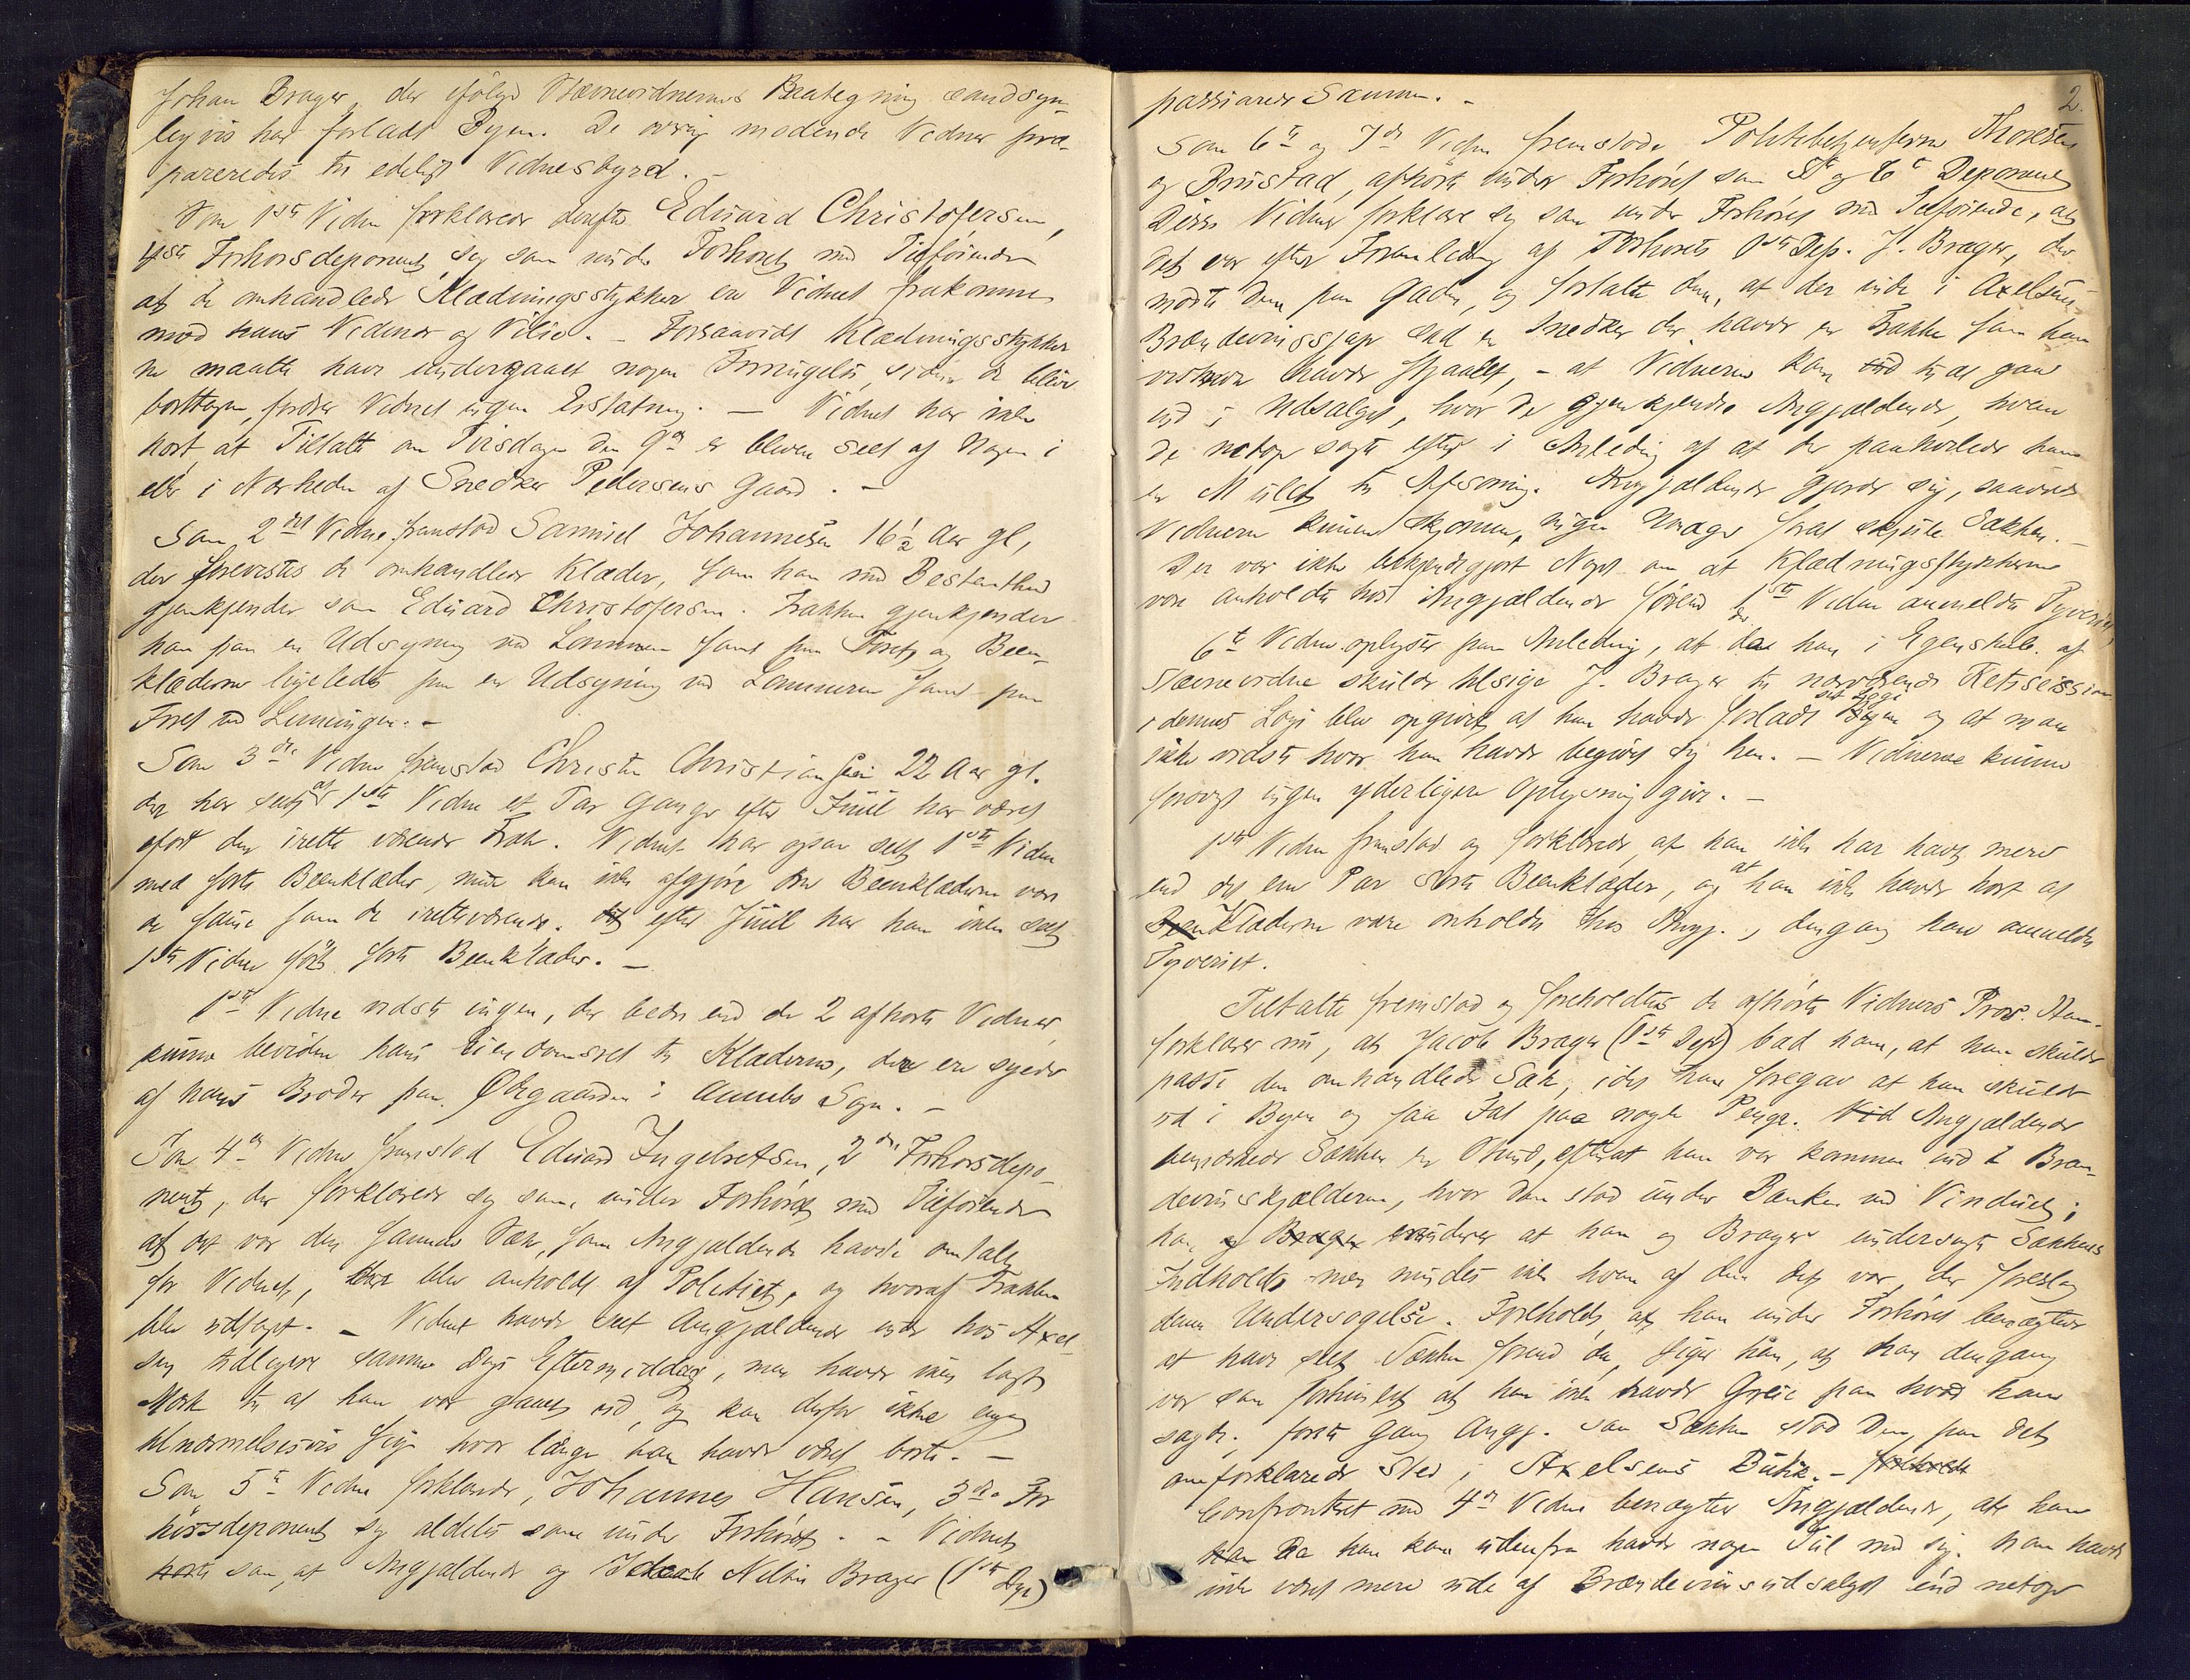 Johan Brager, der ifölge Stævnevidnernes Paategning sandsyn-
ligvis har forladt Byen. De øvrig mødende Vidner præ-
pareredes til edeligt Vidnesbyrd. -
Som 1ste Vidne forklarede derefter Eduard Christofersen,
4de Forhørsdeponent sig som under Forhøret med Tilføiende
at de omhandlede Klædningsstykker er Vidnet frakommen
mod hans Vidende og Villie. - Forsaavidt Klædningsstykker
ne maatte have undergaaet nogen Forringelse, siden de bleve
borttagen, fordrer Vidnet ingen Erstatning. - Vidnet har ikke
hørt, at Tiltalte om Tirsdagen den 9de er bleven seet af Nogen i
eller i Nærheden af Snedker Pedersens Gaard. -
Som 2det Vidne fremstod Samuel Johannesen 16½ Aar gl,
der forevistes de omhandlede Klæder, som han med Bestemthed
gjenkjender som Eduard Christofersens. Frakken gjenkjender
han paa en Udsyning ved Lommen samt paa Foret og Been-
klæderne ligeledes paa en Udsyning ved Lommerne samt paa
Foret ved Linningen. -
Som 3die Vidne fremstod Christen Christiansen 22 Aar gl.
der har seet at 1ste Vidne et Par Gange efter Juul har været
iført den irette værende Frak. Vidnet har ogsaa seet 1ste Vidne
med sorte Beenklæder, men kan ikke afgjøre om Beenklæderne vare
de samme som de iretteværende. efter Juul har han ikke seet
1ste Vidne iført sorte Beenklæder. -
1ste Vidne vidste ingen, der bedre end de 2 afhørte Vidner,
kunne bevidne hans Eiendomsret til Klæderne, der er syede
af hans Broder paa Øhgaarden i Aumbo Sogn. -
Som 4de Vidne fremstod Eduard Ingebretsen, 2den Forhørsdepo-
nent, der forklarede sig som under Forhøret med Tilføiende
at det var den samme Sæk, som Angjældende havde omtalt
for Vidnet, der blev anholdt af Politiet, og hvoraf Frakken
blev udtaget. - Vidnet havde seet Angjældende inde hos Axel
sen tidligere samme Dags Eftermiddag, men havde ikke lagt
Mærke til at han var gaaet ud, og kan derfor ikke engang
tilnærmelsesvis sige hvor længe han havde været borte. -
Som 5te Vidne forklarede, Johannes Hansen, 3die For
hørsdeponent sig aldeles som under Forhøret. - Vidnet
saa, at Angjældende og Jacob Nelsin Brager (1ste Dep)
passiarede Sammen. -
2.
Som 6te og 7de Vidne fremstode Politibetjenterne Thoresen
og Brustad, afhørte under Forhøret som 5te og 6te Deponent
Disse Vidner forklare sig som under Forhøret med Tilføiende, at
det var efter Foranledning af Forhørets 1ste Dep. J. Brager, der
mødte dem paa Gaden, og fortalte dem, at der inde i Axelsens
Brændevinssjap sad en Snedker der havde en Frakke som han
havde stjaalet, - at Vidnerne kom til at gaae
ind i Udsalget, hvor de gjenkjendte Angjældende, hvem
de netop søgte efter i Anledning af at der paahvilede ham
en Mulct til Afsoning. Angjældende gjorde sig, saavidt
Vidnerne kunne skjønne, ingen Umage for at skjule Sækken. -
Der var ikke bekjendtgjort Noget om at Klædningsstykkerne
vare anholdte hos Angjældende førend 1ste Vidne anmeldte Tyveriet.
6te Vidne oplyste paa Anledning, at da han i Egenskab af
Stævnevidne skulde tilsige J. Brager til nærværende Retssession
i dennes Logi blev opgivet at han havde forladt sit Logi og at man
ikke vidste hvor han havde begivet sig hen. - Vidnerne kunne
forøvrigt ingen yderligere Oplysning give. -
1ste Vidne fremstod og forklarede, at han ikke har havt mere
end det ene Par sorte Beenklæder, og at han ikke havde hørt at
Klæderne vare anholdte hos Angj., dengang han anmeldte
Tyveriet.
Tiltalte fremstod og foreholdtes de afhørte Vidners Prov. Han
forklarer nu, at Jacob Brager (1ste Dep) bad ham, at han skulde
passe den omhandlede Sæk, idet han foregav at han skulde
ud i Byen og faa Fat paa nogle Penge. Angjældende
bemærkede Sækken en Stund, efterat han var kommen ind i Bræn-
devinskjælderen, hvor den stod under Bænken ved Vinduet;
han erindrer at han og Brager undersøgte Sækkens
Indhold men mindes ikke hvem af dem det var, der foreslog
denne Undersøgelse. Foreholdt, at han under Forhøret benægtede
at have seet Sækken førend da, siger han, at han dengang
var saa forvirret at han ikke havde Greie paa hvad han
sagde; første Gang Angj. saa Sækken stod Den paa det
omforklarede Sted i Axelsens Butik. -
Confronteret med 4de Vidne benægter Angjældende, at han
da han kom udenfra havde nogen Tul med sig. Han havde
ikke været mere ude af Brændevinsudsalget end netop